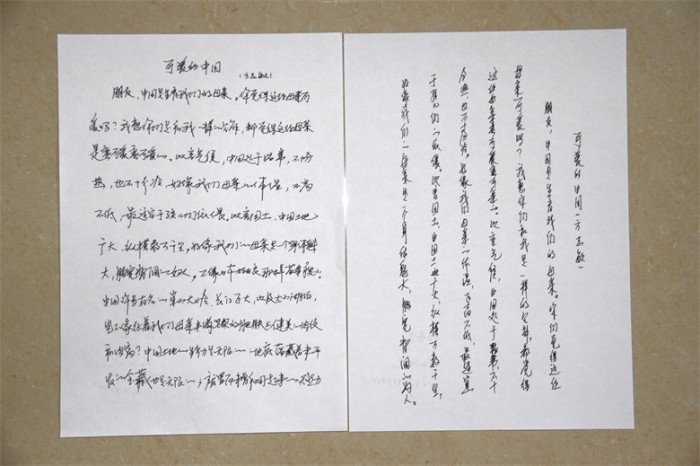 可爱的中国
(方志敏)
朋友，中国是生育我们的母亲。你们觉得这位母亲可
爱吗？我想你们是和我一样的见解，都觉得这位母亲
是蛮可爱蛮可爱的。以言气候，中国处于温带，不十分
热，也不十分冷，好像我们母亲的体温，不高
不低，最适宜于孩儿们的偎依。以言国土，中国土地
广大，纵横万数千里，好像我们的母亲是一个身体魁
大、胸宽背阔的妇人，
中国许多有名的崇山大岭，长江巨河，以及大小湖泊，
岂不象征着我们母亲
中国土地的生产力是无限的；地底蕴藏着未开
发的宝藏也是无限的；
可爱的中国(方志敏)
朋友，中国是生育我们的母亲。你们觉得这位
母亲可爱吗？我想你们和我是一样的见解，都觉得
这位母亲是蛮可爱蛮可爱的。以言气候，中国处于温带，不十
分热，也不十分冷，好像我们母亲的体温，不高不低，最适宜
于孩儿们的偎依。以言国土，中国土地广大，纵横万数千里，
好像我们的母亲是一个身体魁大、胸宽背阔的妇人。